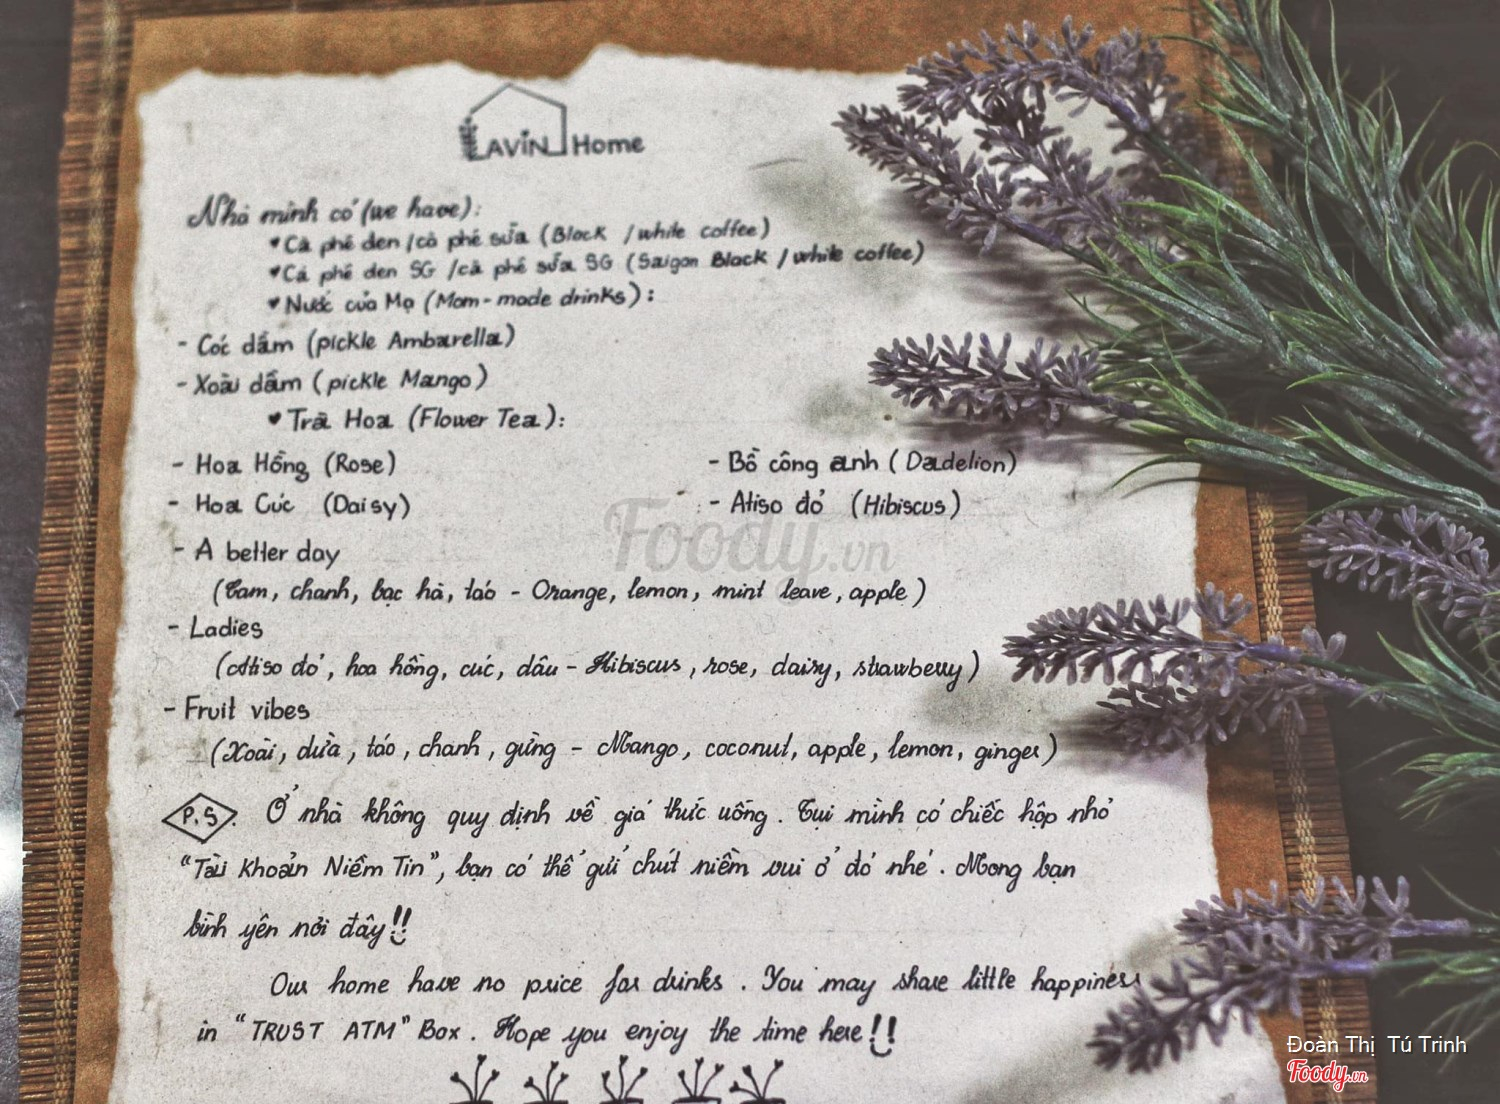 LAVIN Home
Nhà mình có (we have):
Cà phê đen/cà phê sữa (Black /white coffee)
Cà phê đen SG /cà phê sữa SG (Saigon Black /white coffee)
Nước của Mạ (Mom-made drinks):
- Cóc dầm (pickle Ambarella)
- Xoài dầm (pickle Mango)
Trà Hoa (Flower Tea):
- Hoa Hồng (Rose)
- Bồ công anh (Dadelion)
- Hoa Cúc (Daisy)
- Atiso đỏ (Hibiscus)
- A better day
(Cam, chanh, bạc hà, táo - Orange, lemon, mint leave, apple)
- Ladies
(Atiso đỏ, hoa hồng, cúc, dâu - Hibiscus, rose, daisy, strawberry)
- Fruit vibes
(Xoài, dừa, táo, chanh, gừng - Mango, coconut, apple, lemon, ginger)
P.S. Ở nhà không quy định về giá thức uống. Tụi mình có chiếc hộp nhỏ
"Tài Khoản Niềm Tin", bạn có thể gửi chút niềm vui ở đó nhé. Mong bạn
bình yên nơi đây!!
Our home have no price for drinks. You may share little happiness
in "TRUST ATM" Box. Hope you enjoy the time here!!
Foody.vn
Đoàn Thị Tú Trinh
Foody.vn